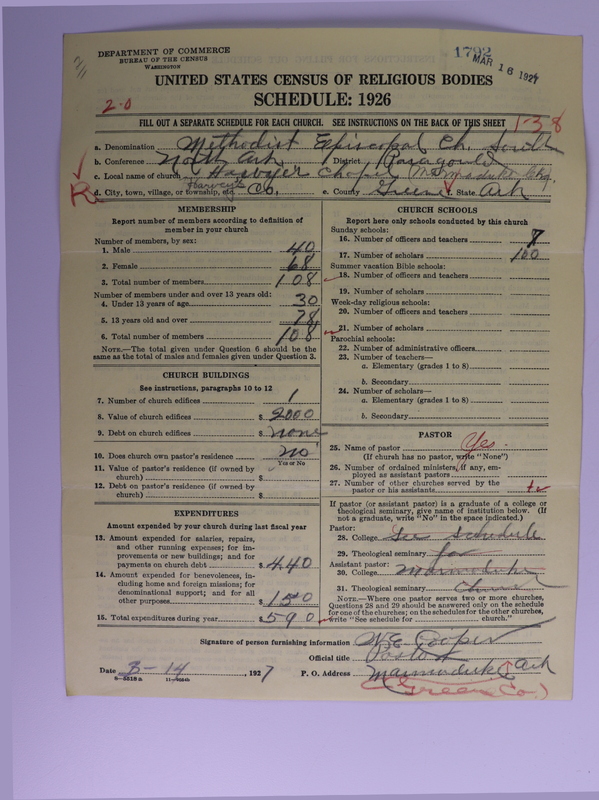 DEPARTMENT OF COMMERCE
BUREAU OF THE CENSUS
WASHINGTON
1792
MAR 16 1927
UNITED STATES CENSUS OF RELIGIOUS BODIES
SCHEDULE: 1926
2-0
FILL OUT A SEPARATE SCHEDULE FOR EACH CHURCH. SEE INSTRUCTIONS ON THE BACK OF THIS SHEET
1-38
a. Denomination Methodist Episcopal Ch. South
b. Conference North Ark District Paragould
c. Local name of church Harvyes Chapel
d. City, town, village, or township, etc. Harveys Co. e. County Greene State Ark
MEMBERSHIP
Report number of members according to definition of member in your church
Number of members, by sex:
1. Male 40
2. Female 68
3. Total number of members 108
Number of members under and over 13 years old:
4. Under 13 years of age 30
5. 13 years old and over 78
6. Total number of members 108
NOTE.—The total given under Question 6 should be the same as the total of males and females given under Question 3.
CHURCH BUILDINGS
See instructions, paragraphs 10 to 12
7. Number of church edifices 1
8. Value of church edifices $ 2000
9. Debt on church edifices $ none
10. Does church own pastor's residence no
Yes or No
11. Value of pastor's residence (if owned by church) $
12. Debt on pastor's residence (if owned by church) $
EXPENDITURES
Amount expended by your church during last fiscal year
13. Amount expended for salaries, repairs, and other running expenses; for improvements or new buildings; and for payments on church debt $ 440
14. Amount expended for benevolences, including home and foreign missions; for denominational support; and for all other purposes $ 150
15. Total expenditures during year $ 590
CHURCH SCHOOLS
Report here only schools conducted by this church
Sunday schools:
16. Number of officers and teachers 7
17. Number of scholars 100
Summer vacation Bible schools:
18. Number of officers and teachers
19. Number of scholars
Week-day religious schools:
20. Number of officers and teachers
21. Number of scholars
Parochial schools:
22. Number of administrative officers
23. Number of teachers—
a. Elementary (grades 1 to 8)
b. Secondary
24. Number of scholars—
a. Elementary (grades 1 to 8)
b. Secondary
PASTOR
25. Name of pastor Yes.
(If church has no pastor, write "None")
26. Number of ordained ministers, if any, employed as assistant pastors
27. Number of other churches served by the pastor or his assistants
If pastor (or assistant pastor) is a graduate of a college or theological seminary, give name of institution below. (If not a graduate, write "No" in the space indicated.)
Pastor:
28. College See Schedule
29. Theological seminary for
Assistant pastor:
30. College Marmaduke
31. Theological seminary Church
NOTE.—Where one pastor serves two or more churches, Questions 28 and 29 should be answered only on the schedule for one of the churches; on the schedules for the other churches, write "See schedule for church."
Signature of person furnishing information W E Cooper
Official title Pastor
Date 3-14 1927 P. O. Address Marmaduke Ark
(Green Co.)